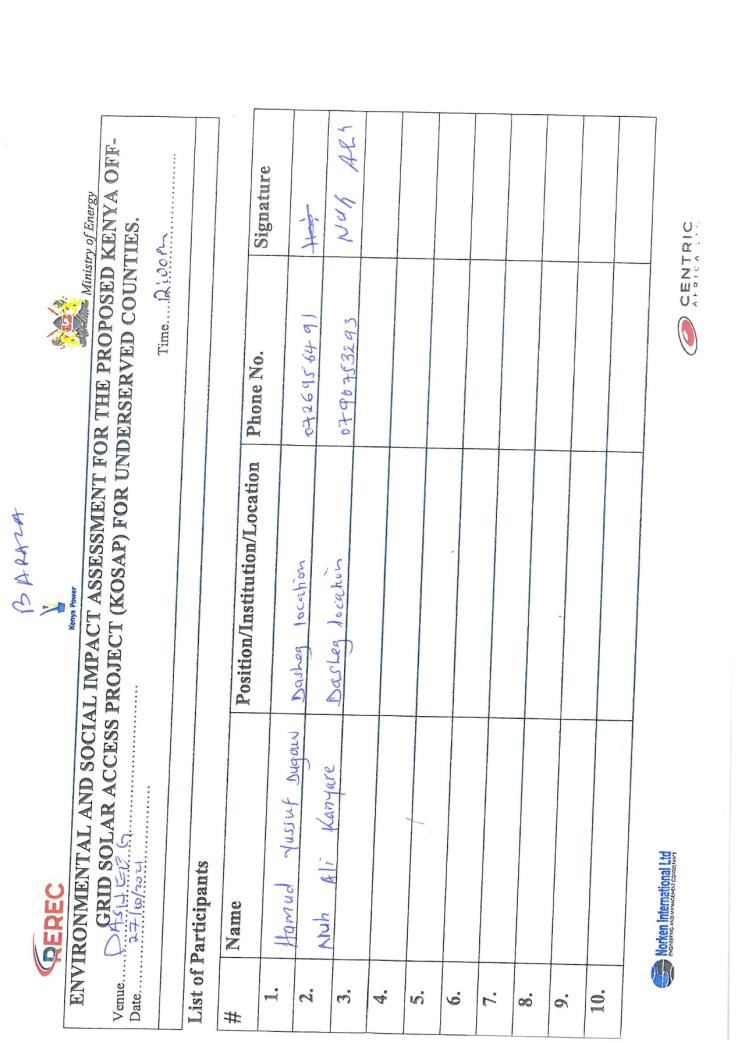 BARAZA
REREC
Kenya Power
Ministry of Energy
ENVIRONMENTAL AND SOCIAL IMPACT ASSESSMENT FOR THE PROPOSED KENYA OFF-
GRID SOLAR ACCESS PROJECT (KOSAP) FOR UNDERSERVED COUNTIES.
Venue....DASHEEG
Date....27/10/2021 Time....12:00pm
List of Participants
# Name Position/Institution/Location Phone No. Signature
1. Hamud Yussuf Dugow Dasheg location 0726956491
2. Nuh Ali Kanyare Dasheg location 0790753293 Nuh Ali
3.
4.
5.
6.
7.
8.
9.
10.
Norken International Ltd
ENGINEERING AND MANAGEMENT CONSULTANTS
CENTRIC
AFRICA LTD